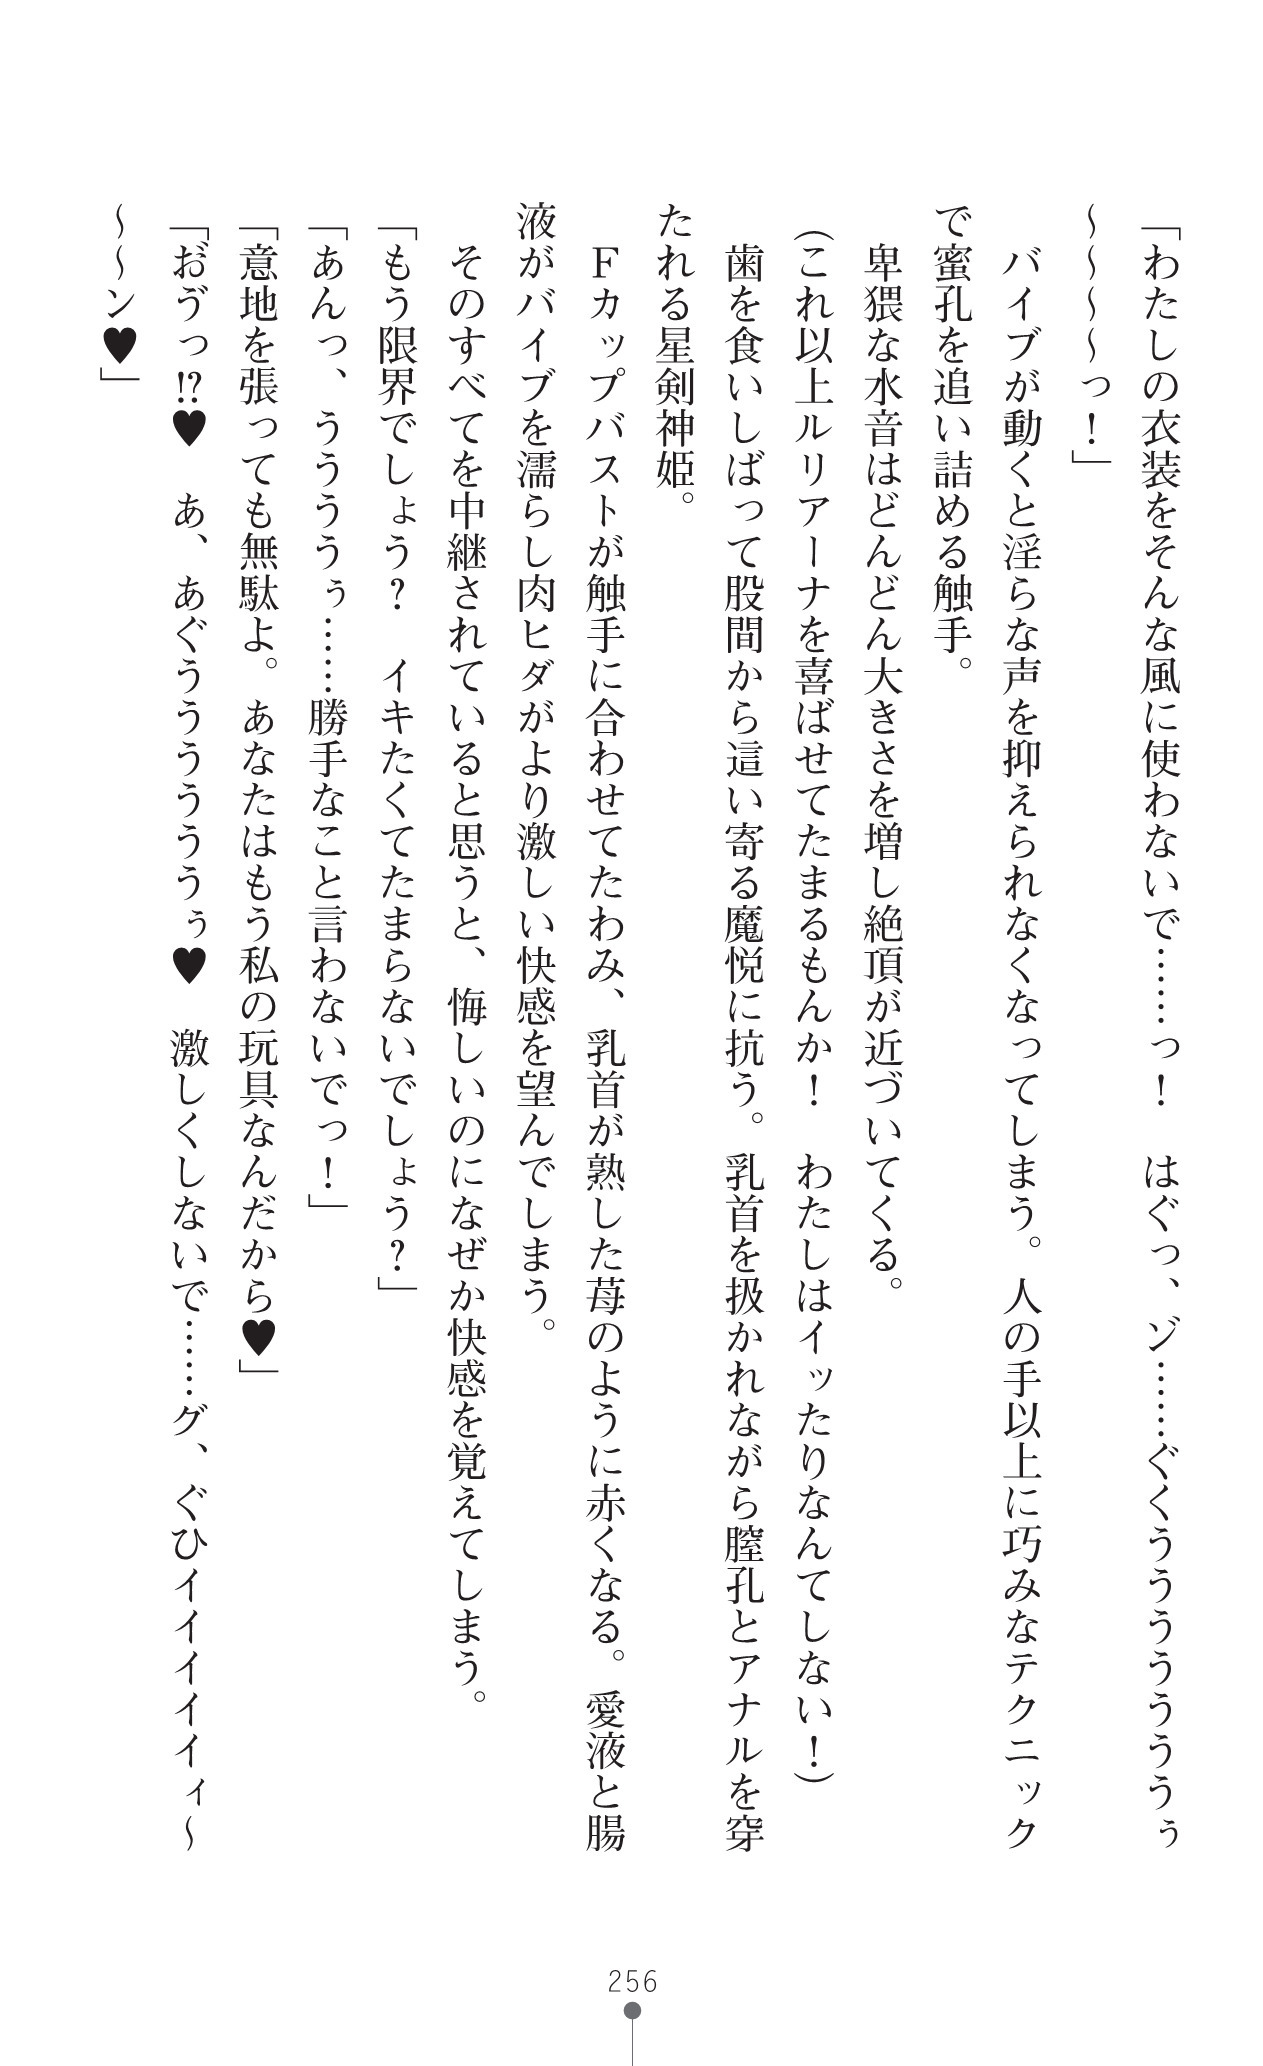 「わたしの衣装をそんな風に使わないで……っ！　はぐっ、ゾ……ぐくうううううううぅ
～～～～っ！」
　バイブが動くと淫らな声を抑えられなくなってしまう。人の手以上に巧みなテクニック
で蜜孔を追い詰める触手。
　卑猥な水音はどんどん大きさを増し絶頂が近づいてくる。
（これ以上ルリアーナを喜ばせてたまるもんか！　わたしはイッたりなんてしない！）
　歯を食いしばって股間から這い寄る魔悦に抗う。乳首を扱かれながら膣孔とアナルを穿
たれる星剣神姫。
　Ｆカップバストが触手に合わせてたわみ、乳首が熟した苺のように赤くなる。愛液と腸
液がバイブを濡らし肉ヒダがより激しい快感を望んでしまう。
　そのすべてを中継されていると思うと、悔しいのになぜか快感を覚えてしまう。
「もう限界でしょう？　イキたくてたまらないでしょう？」
「あんっ、ううううぅ……勝手なこと言わないでっ！」
「意地を張っても無駄よ。あなたはもう私の玩具なんだから♥」
「お゛ゔっ!?♥　あ、あぐううううううぅ♥　激しくしないで……グ、ぐひイイイイイィ～
～～ン♥」
256